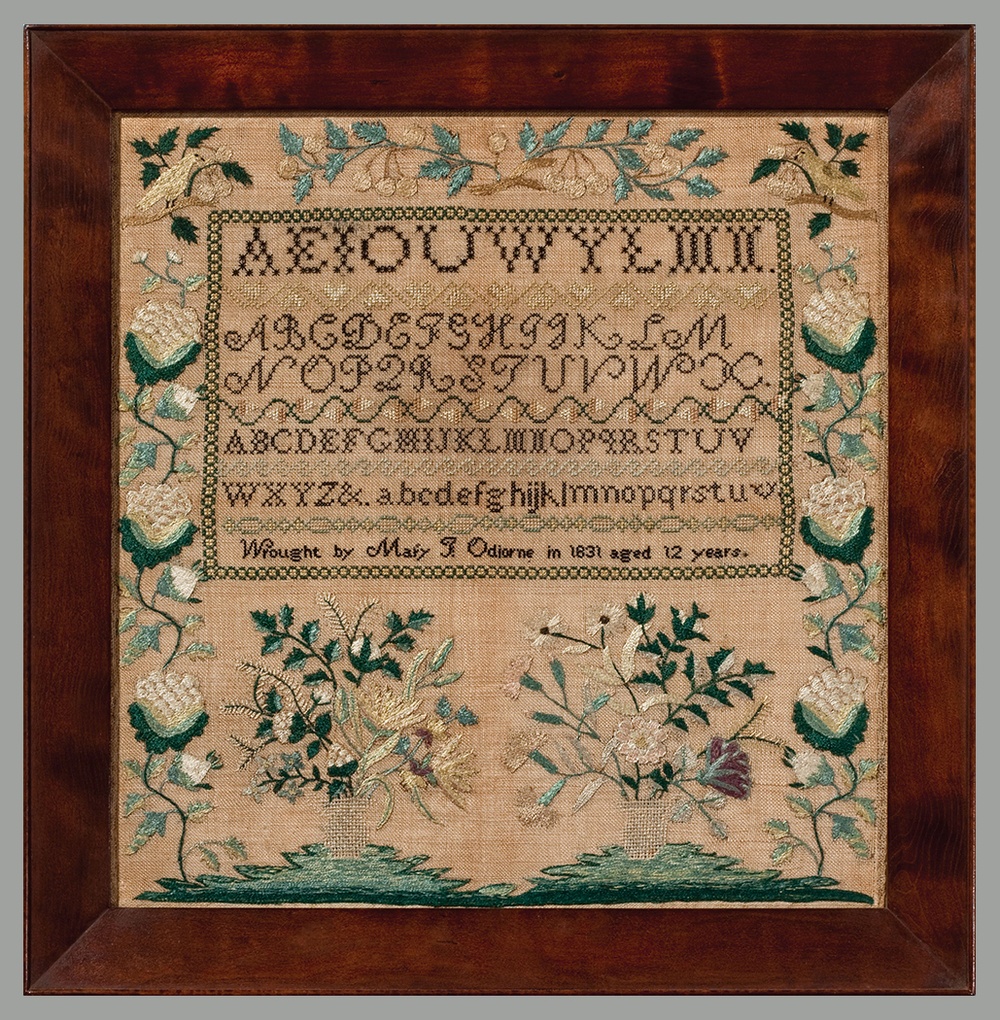 AEIOUWYLMN.
ABCDEFGHIJKLM
NOPQRSTUVWX.
ABCDEFGHIJKLMNOPQRSTUV
WXYZ&. abcdefghijklmnopqrstuv
Wrought by Mary F. Odiorne in 1831 aged 12 years.